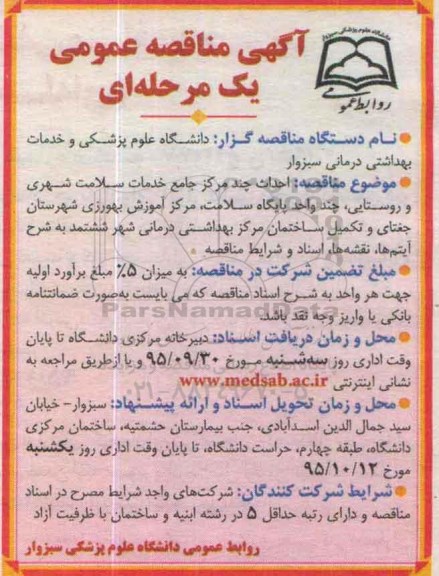 دانشگاه علوم پزشکی سبزوار
روابط عمومی
آگهی مناقصه عمومی
یک مرحله‌ای
نـام دسـتگاه مناقصه گـزار: دانشـگاه علوم پزشـکی و خدمات
بهداشتی درمانی سبزوار
موضوع مناقصه: احداث چند مرکز جامع خدمات سـلامت شـهری
و روسـتایی، چند واحد پایگاه سـلامت، مرکز آموزش بهورزی شهرستان
جغتای و تکمیل سـاختمان مرکز بهداشـتی درمانی شهر ششتمد به شرح
آیتم‌ها، نقشه‌ها، اسناد و شرایط مناقصه
مبلغ تضمین شرکت در مناقصه: به میزان ۵٪ مبلغ برآورد اولیه
جهت هر واحد به شـرح اسناد مناقصه که می بایست به‌صورت ضمانتنامه
بانکی یا واریز وجه نقد باشد.
ParsNamadData
محل و زمان دریافت اسـناد: دبیرخانه مرکزی دانشـگاه تا پایان
وقت اداری روز سه‌شـنبه مـورخ ۹۵/۰۹/۳۰ و یا ازطریق مراجعه به
نشانی اینترنتی www.medsab.ac.ir
محل و زمان تحویل اسـناد و ارائه پیشـنهاد: سبزوار- خیابان
سید جمال الدین اسـدآبادی، جنب بیمارستان حشمتیه، ساختمان مرکزی
دانشگاه، طبقه چهارم، حراست دانشگاه، تا پایان وقت اداری روز یکشنبه
مورخ ۹۵/۱۰/۱۲
شرایط شرکت کنندگان: شرکت‌های واجد شرایط مصرح در اسناد
مناقصه و دارای رتبه حداقل ۵ در رشته ابنیه و ساختمان با ظرفیت آزاد
روابط عمومی دانشگاه علوم پزشکی سبزوار